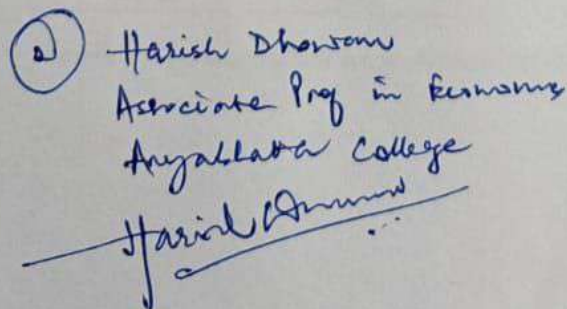 ② Harish Dhawan
Associate Prof in Economics
Aryabhatta College
Harish Dhawan